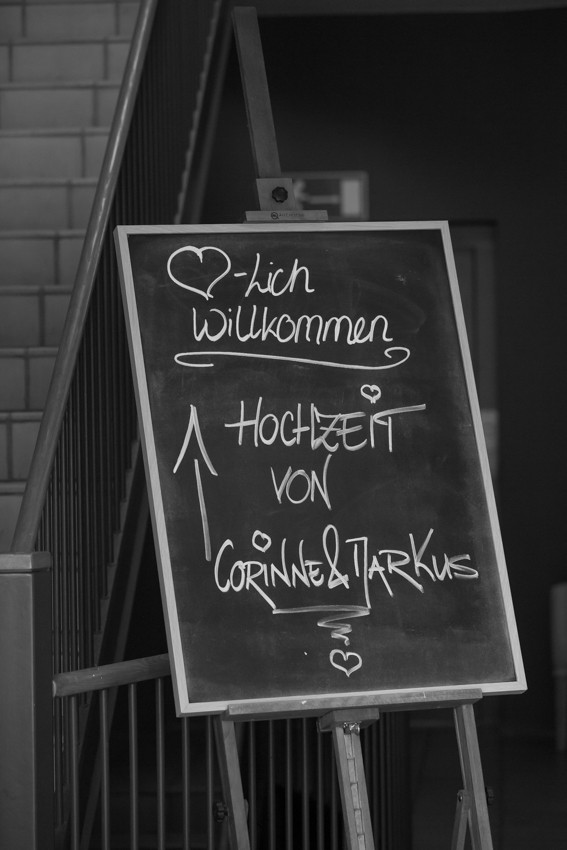 ♡-Lich
Willkommen
HOCHZEIT
VON
CORINNE & MARKUS